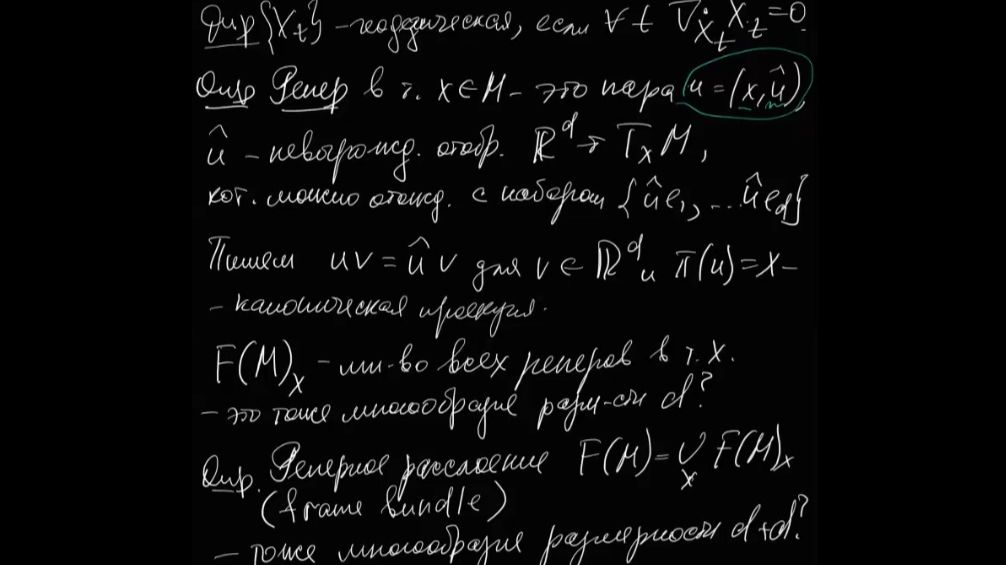 Опр {X_t} – геодезическая, если ∀t ∇_{Ẋ_t} Ẋ_t = 0
Опр Репер в т. x ∈ M – это пара u = (x, û),
û – невырожд. отобр. ℝ^d → T_xM,
кот. можно отожд. с набором {ûe_1, ... ûe_d}
Пишем uv = ûv для v ∈ ℝ^d и π(u) = x –
– каноническая проекция.
F(M)_x – мн-во всех реперов в т. x.
– это тоже многообразие разм-сти d²
Опр. Реперное расслоение F(M) = ∪_x F(M)_x
(frame bundle)
– тоже многообразие размерности d+d²